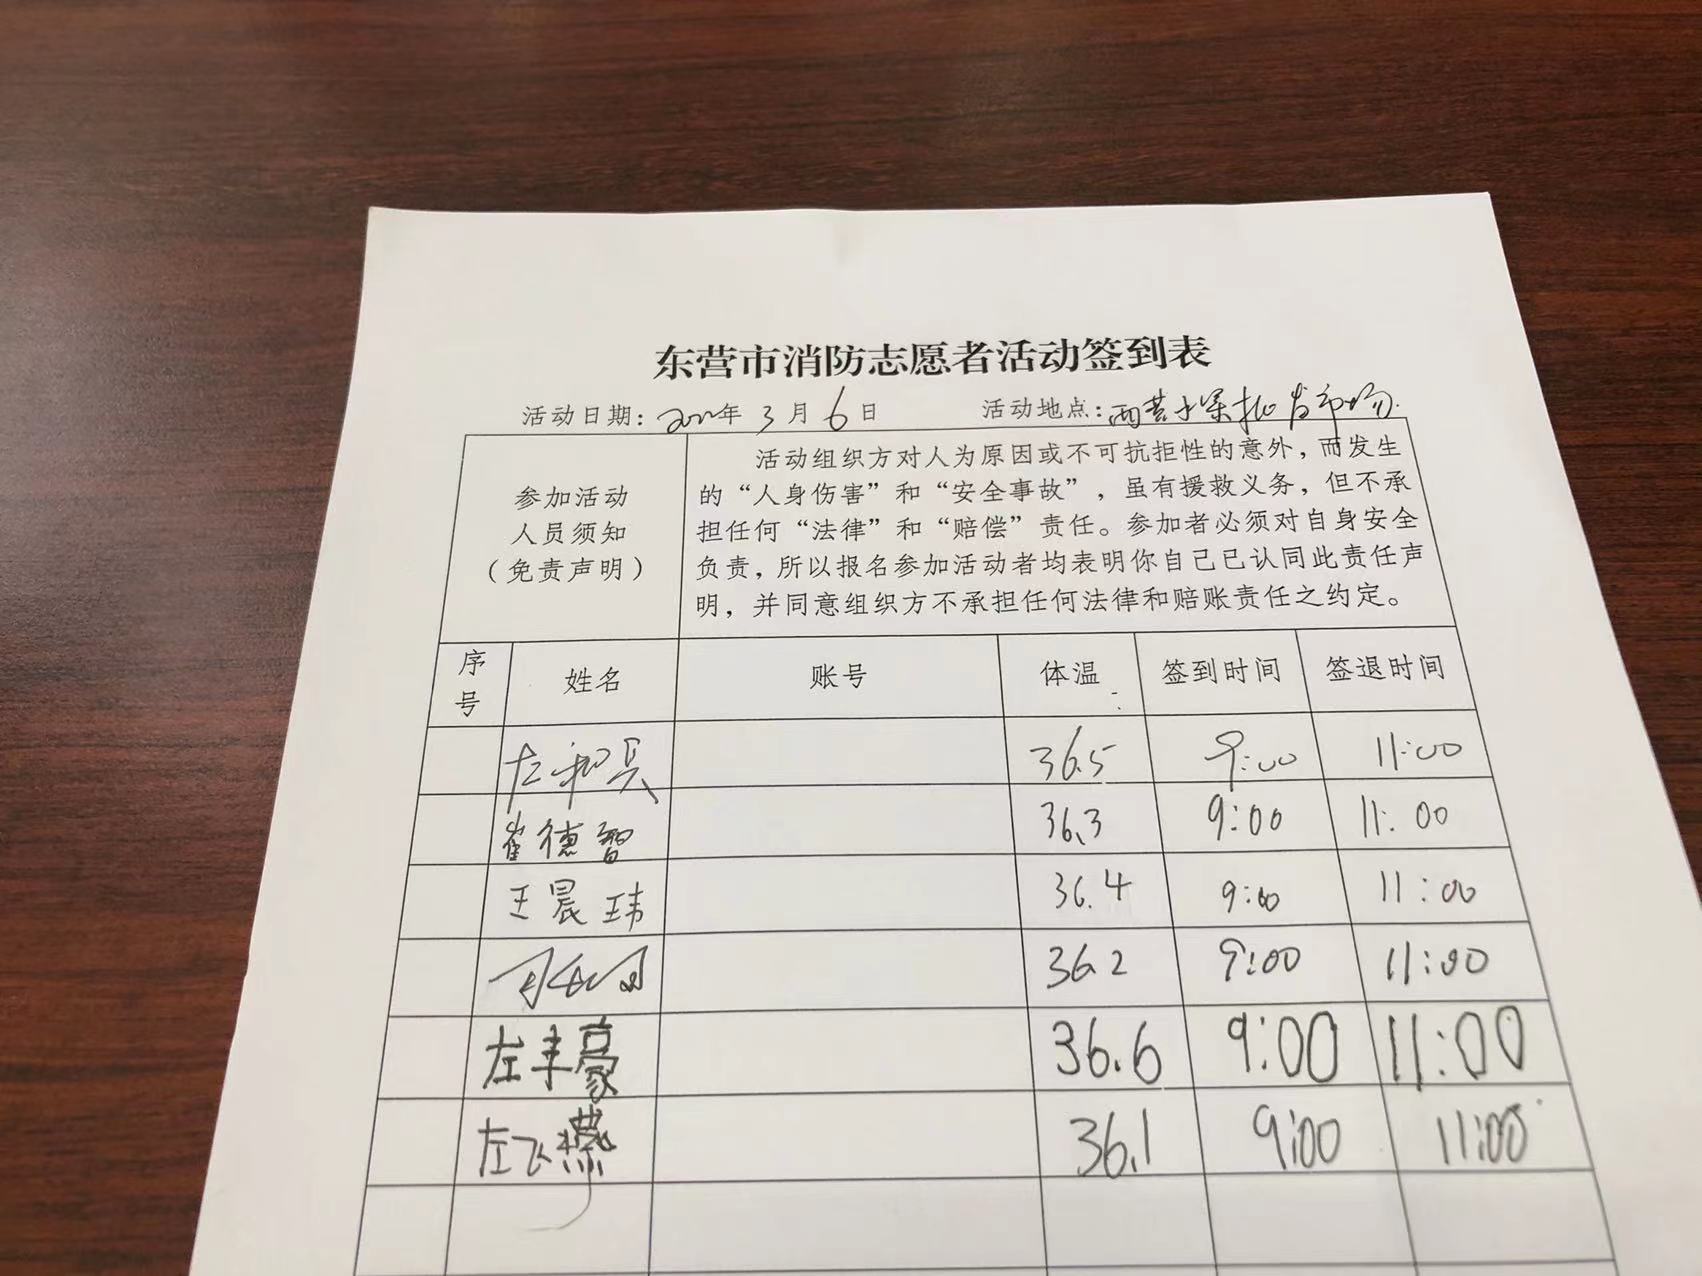 东营市消防志愿者活动签到表
活动日期：2022年3月6日 活动地点：西营水果批发市场
参加活动
人员须知
（免责声明）
活动组织方对人为原因或不可抗拒性的意外，而发生
的“人身伤害”和“安全事故”，虽有援救义务，但不承
担任何“法律”和“赔偿”责任。参加者必须对自身安全
负责，所以报名参加活动者均表明你自己已认同此责任声
明，并同意组织方不承担任何法律和赔账责任之约定。
序号 姓名 账号 体温 签到时间 签退时间
左 36.5 9:00 11:00
崔德智 36.3 9:00 11:00
王晨玮 36.4 9:00 11:00
36.2 9:00 11:00
左丰豪 36.6 9:00 11:00
左飞燕 36.1 9:00 11:00